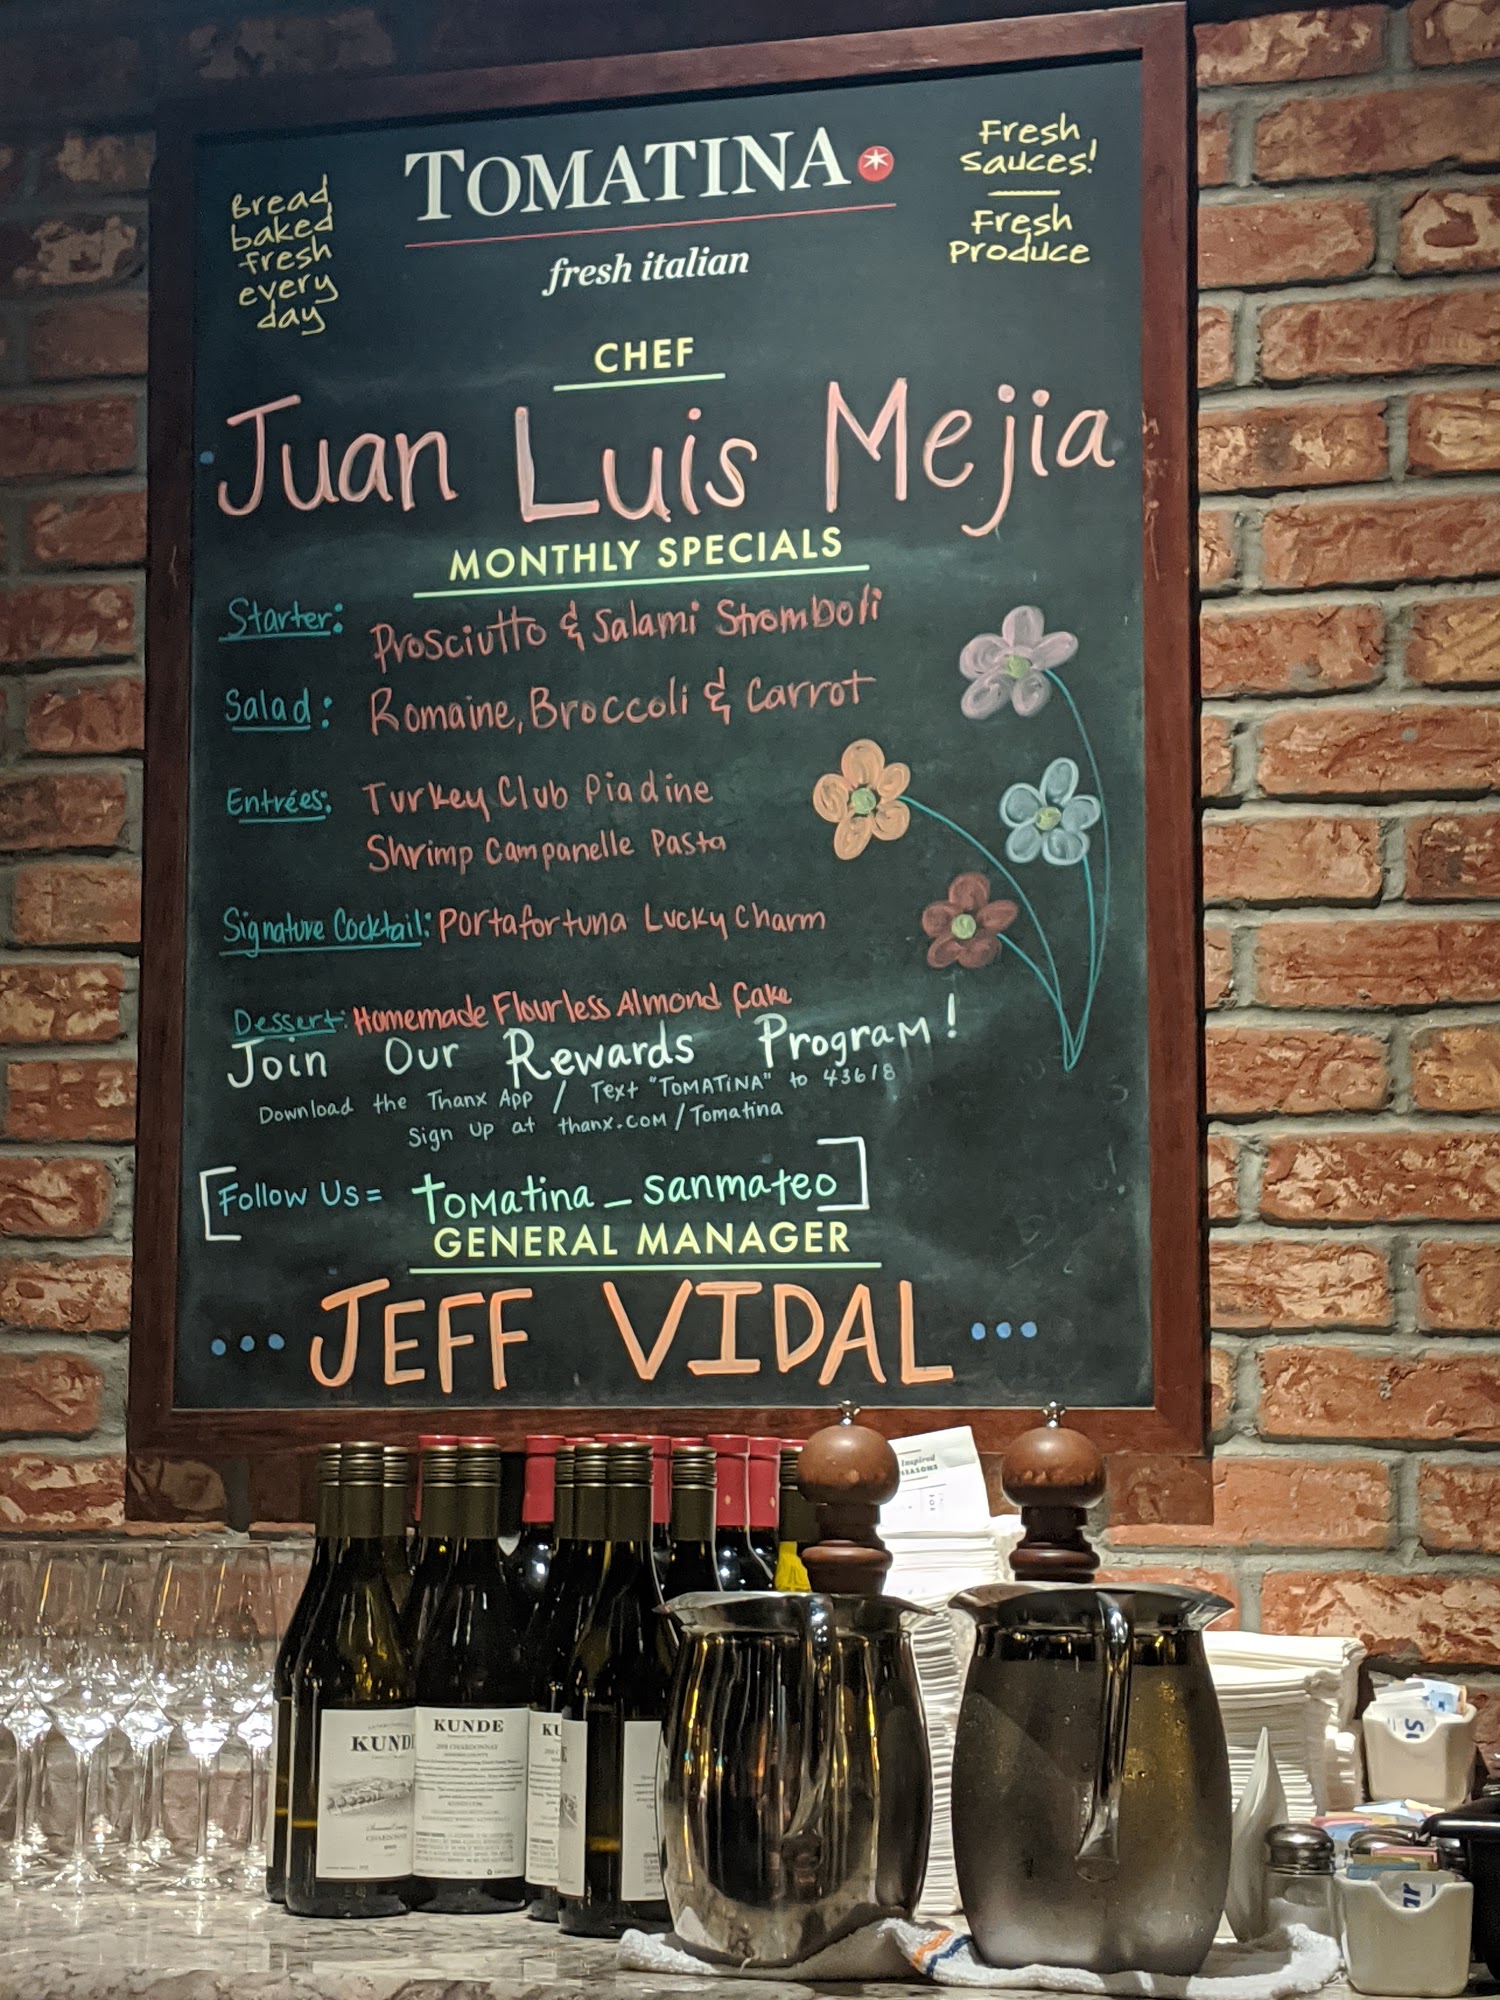 Bread
baked
fresh
every
day
TOMATINA
fresh italian
Fresh
Sauces!
Fresh
Produce
CHEF
Juan Luis Mejia
MONTHLY SPECIALS
Starter: Prosciutto & Salami Stromboli
Salad: Romaine, Broccoli & Carrot
Entrées: Turkey Club Piadine
Shrimp Campanelle Pasta
Signature Cocktail: Portafortuna Lucky Charm
Dessert: Homemade Flourless Almond Cake
Join Our Rewards Program!
Download the Thanx App / Text "TOMATINA" to 43618
Sign up at thanx.com/Tomatina
[Follow Us = tomatina_sanmateo]
GENERAL MANAGER
JEFF VIDAL
Inspired
KUNDE
KUNDE
CHARDONNAY